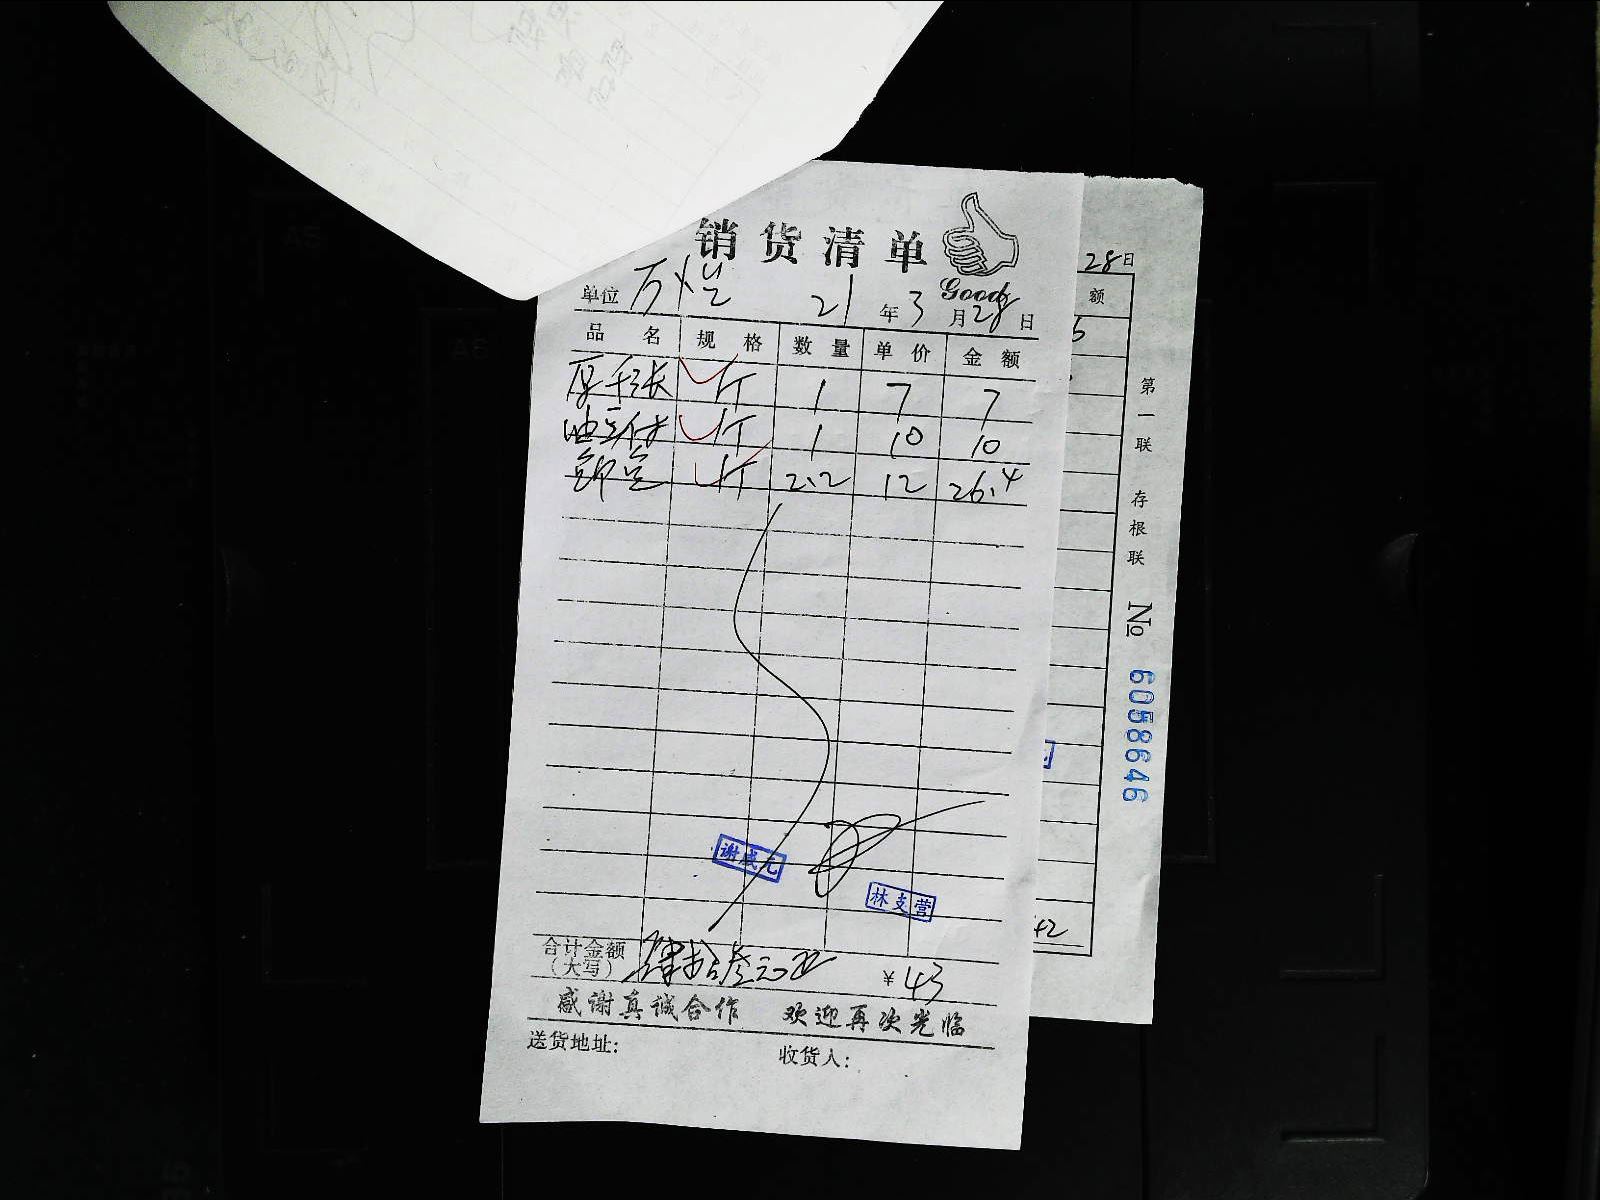 销货清单
Good
单位 21年3月28日
品名 规格 数量 单价 金额
厚千张 斤 1 7 7
油豆付 斤 1 10 10
斤 2.2 12 26.4
谢成元
林支营
合计金额(大写) 肆拾叁元正 ¥43
感谢真诚合作 欢迎再次光临
送货地址: 收货人:
28日
额
42
第一联 存根联 № 6058646
A5
A6